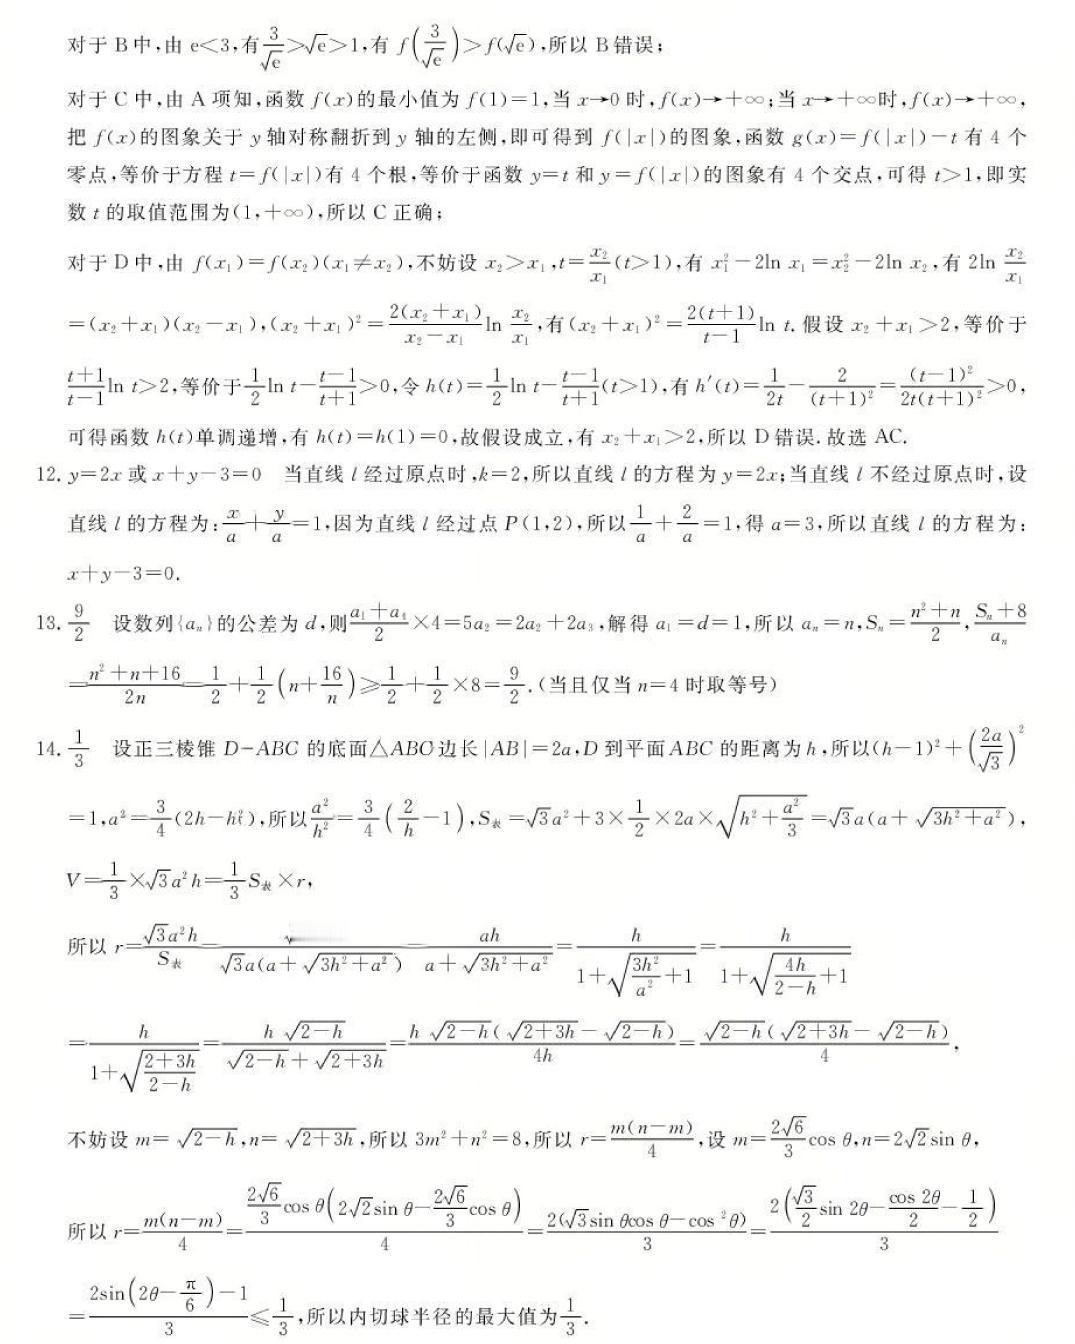 对于 B 中,由 e<3,有 3/√e>√e>1,有 f(3/√e)>f(√e),所以 B 错误;
对于 C 中,由 A 项知,函数 f(x)的最小值为 f(1)=1,当 x→0 时,f(x)→+∞;当 x→+∞时,f(x)→+∞,
把 f(x)的图象关于 y 轴对称翻折到 y 轴的左侧,即可得到 f(|x|)的图象,函数 g(x)=f(|x|)-t 有 4 个
零点,等价于方程 t=f(|x|)有 4 个根,等价于函数 y=t 和 y=f(|x|)的图象有 4 个交点,可得 t>1,即实
数 t 的取值范围为(1,+∞),所以 C 正确;
对于 D 中,由 f(x₁)=f(x₂)(x₁≠x₂),不妨设 x₂>x₁,t=x₂/x₁(t>1),有 x₁²-2ln x₁=x₂²-2ln x₂,有 2ln x₂/x₁
=(x₂+x₁)(x₂-x₁),(x₂+x₁)²=2(x₂+x₁)/(x₂-x₁) ln x₂/x₁,有(x₂+x₁)²=2(t+1)/(t-1) ln t. 假设 x₂+x₁>2,等价于
(t+1)/(t-1) ln t>2,等价于 1/2 ln t-(t-1)/(t+1)>0,令 h(t)=1/2 ln t-(t-1)/(t+1)(t>1),有 h′(t)=1/(2t)-2/(t+1)²=(t-1)²/(2t(t+1)²)>0,
可得函数 h(t)单调递增,有 h(t)=h(1)=0,故假设成立,有 x₂+x₁>2,所以 D 错误. 故选 AC.
12. y=2x 或 x+y-3=0 当直线 l 经过原点时,k=2,所以直线 l 的方程为 y=2x;当直线 l 不经过原点时,设
直线 l 的方程为:x/a+y/a=1,因为直线 l 经过点 P(1,2),所以 1/a+2/a=1,得 a=3,所以直线 l 的方程为:
x+y-3=0.
13. 9/2 设数列{aₙ}的公差为 d,则 (a₁+a₄)/2×4=5a₂=2a₂+2a₃,解得 a₁=d=1,所以 aₙ=n,Sₙ=(n²+n)/2,(Sₙ+8)/aₙ
=(n²+n+16)/(2n)=1/2+1/2(n+16/n)≥1/2+1/2×8=9/2.(当且仅当 n=4 时取等号)
14. 1/3 设正三棱锥 D-ABC 的底面△ABC 边长|AB|=2a,D 到平面 ABC 的距离为 h,所以(h-1)²+(2a/√3)²
=1,a²=3/4(2h-h²),所以 a²/h²=3/4(2/h-1),S表=√3a²+3×1/2×2a×√(h²+a²/3)=√3a(a+√(3h²+a²)),
V=1/3×√3a²h=1/3 S表×r,
所以 r=√3a²h/S表=√/(√3a(a+√(3h²+a²)))=ah/(a+√(3h²+a²))=h/(1+√(3h²/a²+1))=h/(1+√(4h/(2-h)+1))
=h/(1+√((2+3h)/(2-h)))=h√(2-h)/(√(2-h)+√(2+3h))=h√(2-h)(√(2+3h)-√(2-h))/(4h)=√(2-h)(√(2+3h)-√(2-h))/4,
不妨设 m=√(2-h),n=√(2+3h),所以 3m²+n²=8,所以 r=m(n-m)/4,设 m=(2√6/3)cos θ,n=2√2sin θ,
所以 r=m(n-m)/4=(2√6/3)cos θ(2√2sin θ-(2√6/3)cos θ)/4=2(√3sin θcos θ-cos²θ)/3=2((√3/2)sin 2θ-cos 2θ/2-1/2)/3
=(2sin(2θ-π/6)-1)/3≤1/3,所以内切球半径的最大值为 1/3.